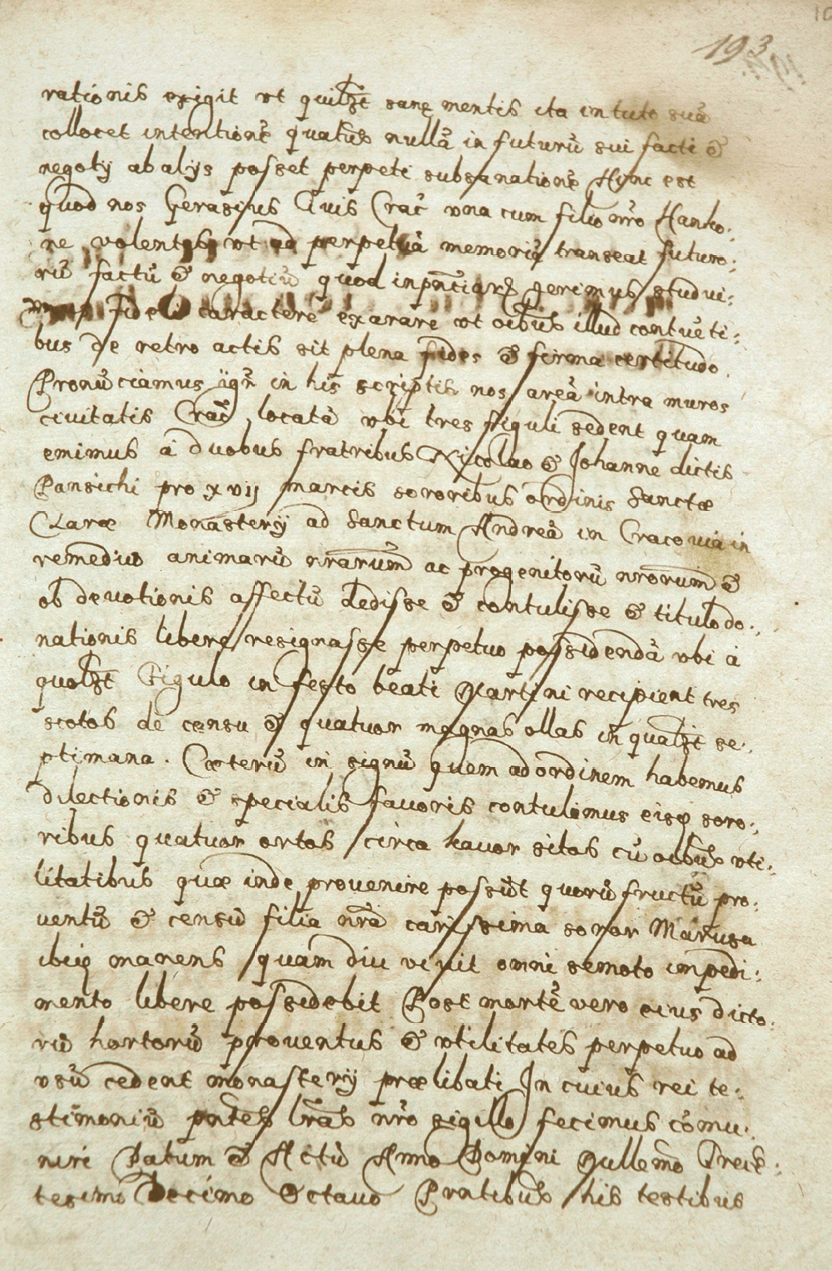 193
rationis exigit vt quilibet sanę mentis ita in tuto suā
collocet intentionē quatus nullā in futurū sui facti &
negotij ab alijs posset perpeti subsanationē Hync est
quod nos Gerasius Ciuis Crac̄ vna cum filio nr̄o Hanko:
ne volentes vt ad perpetuā memoriā transeat futuro:
rū factū & negotiū quod inpn̄tiarū gerimus studui:
fidei caractere exarare vt oībus illud contuēti:
bus de retro actis sit plena fides & firma certitudo.
Pronūciamus igr̄ in his scriptis nos areā intra muros
civitatis Crac̄ locatā vbi tres figuli sedent quam
emimus ā duobus fratribus Nicolao & Johanne dictis
Pansichi pro xvij marcis sororibus ordinis Sanctæ
Claræ Monasterij ad Sanctum Andreā in Cracouia in
remediū animarū nrarum ac progenitorū nrorum &
ob devotionis affectū dedisse & contulisse & titulo do:
nationis libere resignasse perpetuo possidendā vbi ā
quolƶt Figulo in festo beati Martini recipient tres
scotos de censu & quatuor magnas ollas in qualƶt se:
ptimana. Cæterū in signū quem ad ordinem habemus
dilectionis & specialis favoris contulimus eisq̨ soro:
ribus quatuor ortos circa kauor sitos cū oībus vti:
litatibus quæ inde provenire possūt quorū fructū pro:
ventū & censū filia nrā carissima soror Marusa
ibiq̨ manens quam diu vixit omni semoto impedi:
mento libere possidebit Post mortē vero eius dicto:
rū hortorū proventus & vtilitates perpetuo ad
vsū cedent monasterij prælibati In cuius rei te:
stimoniū pn̄tes lrās nrō sigillo fecimus cōmu:
niri Datum & Actū Anno Domini Millemō Trecē:
tesimo Decimo Octauo Prn̄tibus his testibus